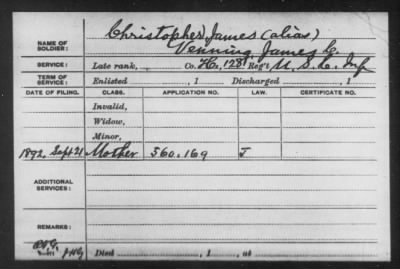 Christopher, James (alias)
NAME OF
SOLDIER:
Venning, James C.
SERVICE: Late rank, Co. H, 128 Reg't U. S. C. Inf
TERM OF
SERVICE: Enlisted , 1 Discharged , 1
DATE OF FILING. CLASS. APPLICATION NO. LAW. CERTIFICATE NO.
Invalid,
Widow,
Minor,
1892, Sept 21 Mother 560.169 J
ADDITIONAL
SERVICES:
REMARKS:
Died , 1 , at